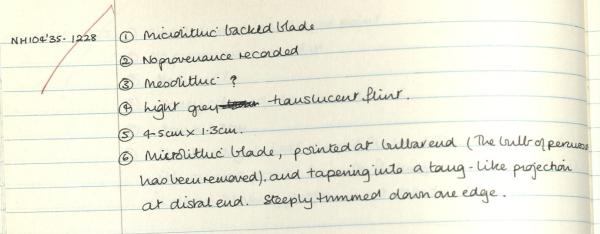 NH104'35.1228 ① Microlithic backed blade
② No provenance recorded
③ Mesolithic ?
④ Light grey translucent flint.
⑤ 4.5cm x 1.3cm.
⑥ Microlithic blade, pointed at bulbar end (The bulb of percuss
has been removed), and tapering into a tang-like projection
at distal end. Steeply trimmed down one edge.